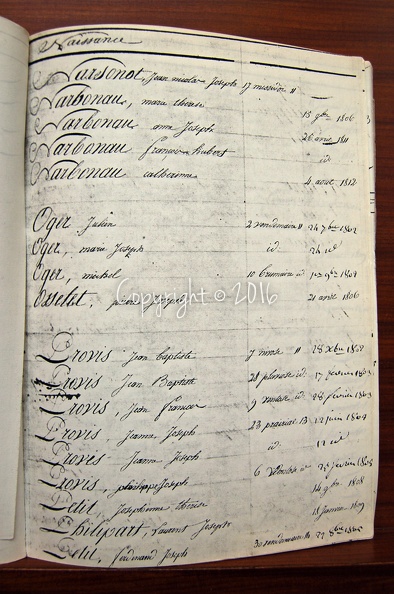 Naissance
Narsonot, Jean nicolas Joseph 17 messidor 11
Narbonau, marie therese 15 9bre 1806
Narbonau anne Joseph 26 avril 1811
Narbonau francois hubert id
Narbonau catherinne 4 aout 1812
Oger Julien 2 vendemiaire 11 24 7bre 1802
Oger, marie Joseph id 24 id
Oger, michel 10 brumaire id 1er 9bre 1802
Osselet, Joseph 21 avril 1806
Copyright © 2016
Provis Jean baptiste 7 nivose 11 28 Xbre 1802
Provis Jean Baptiste 28 pluviose id 17 fevrier 1803
Provis, Jean francois 9 ventose id 28 fevrier 1803
Provis, Jeanne Joseph 23 prairial 12 12 juin 1804
Provis Jeanne Joseph id 12 id
Provis, philippe Joseph 6 ventose 25 fevrier 1805
Petit, Josephinne therese 14 9bre 1808
Philipart, Laurent Joseph 18 Janvier 1809
Petit, ferdinand Joseph 30 vendemiaire 22 8bre